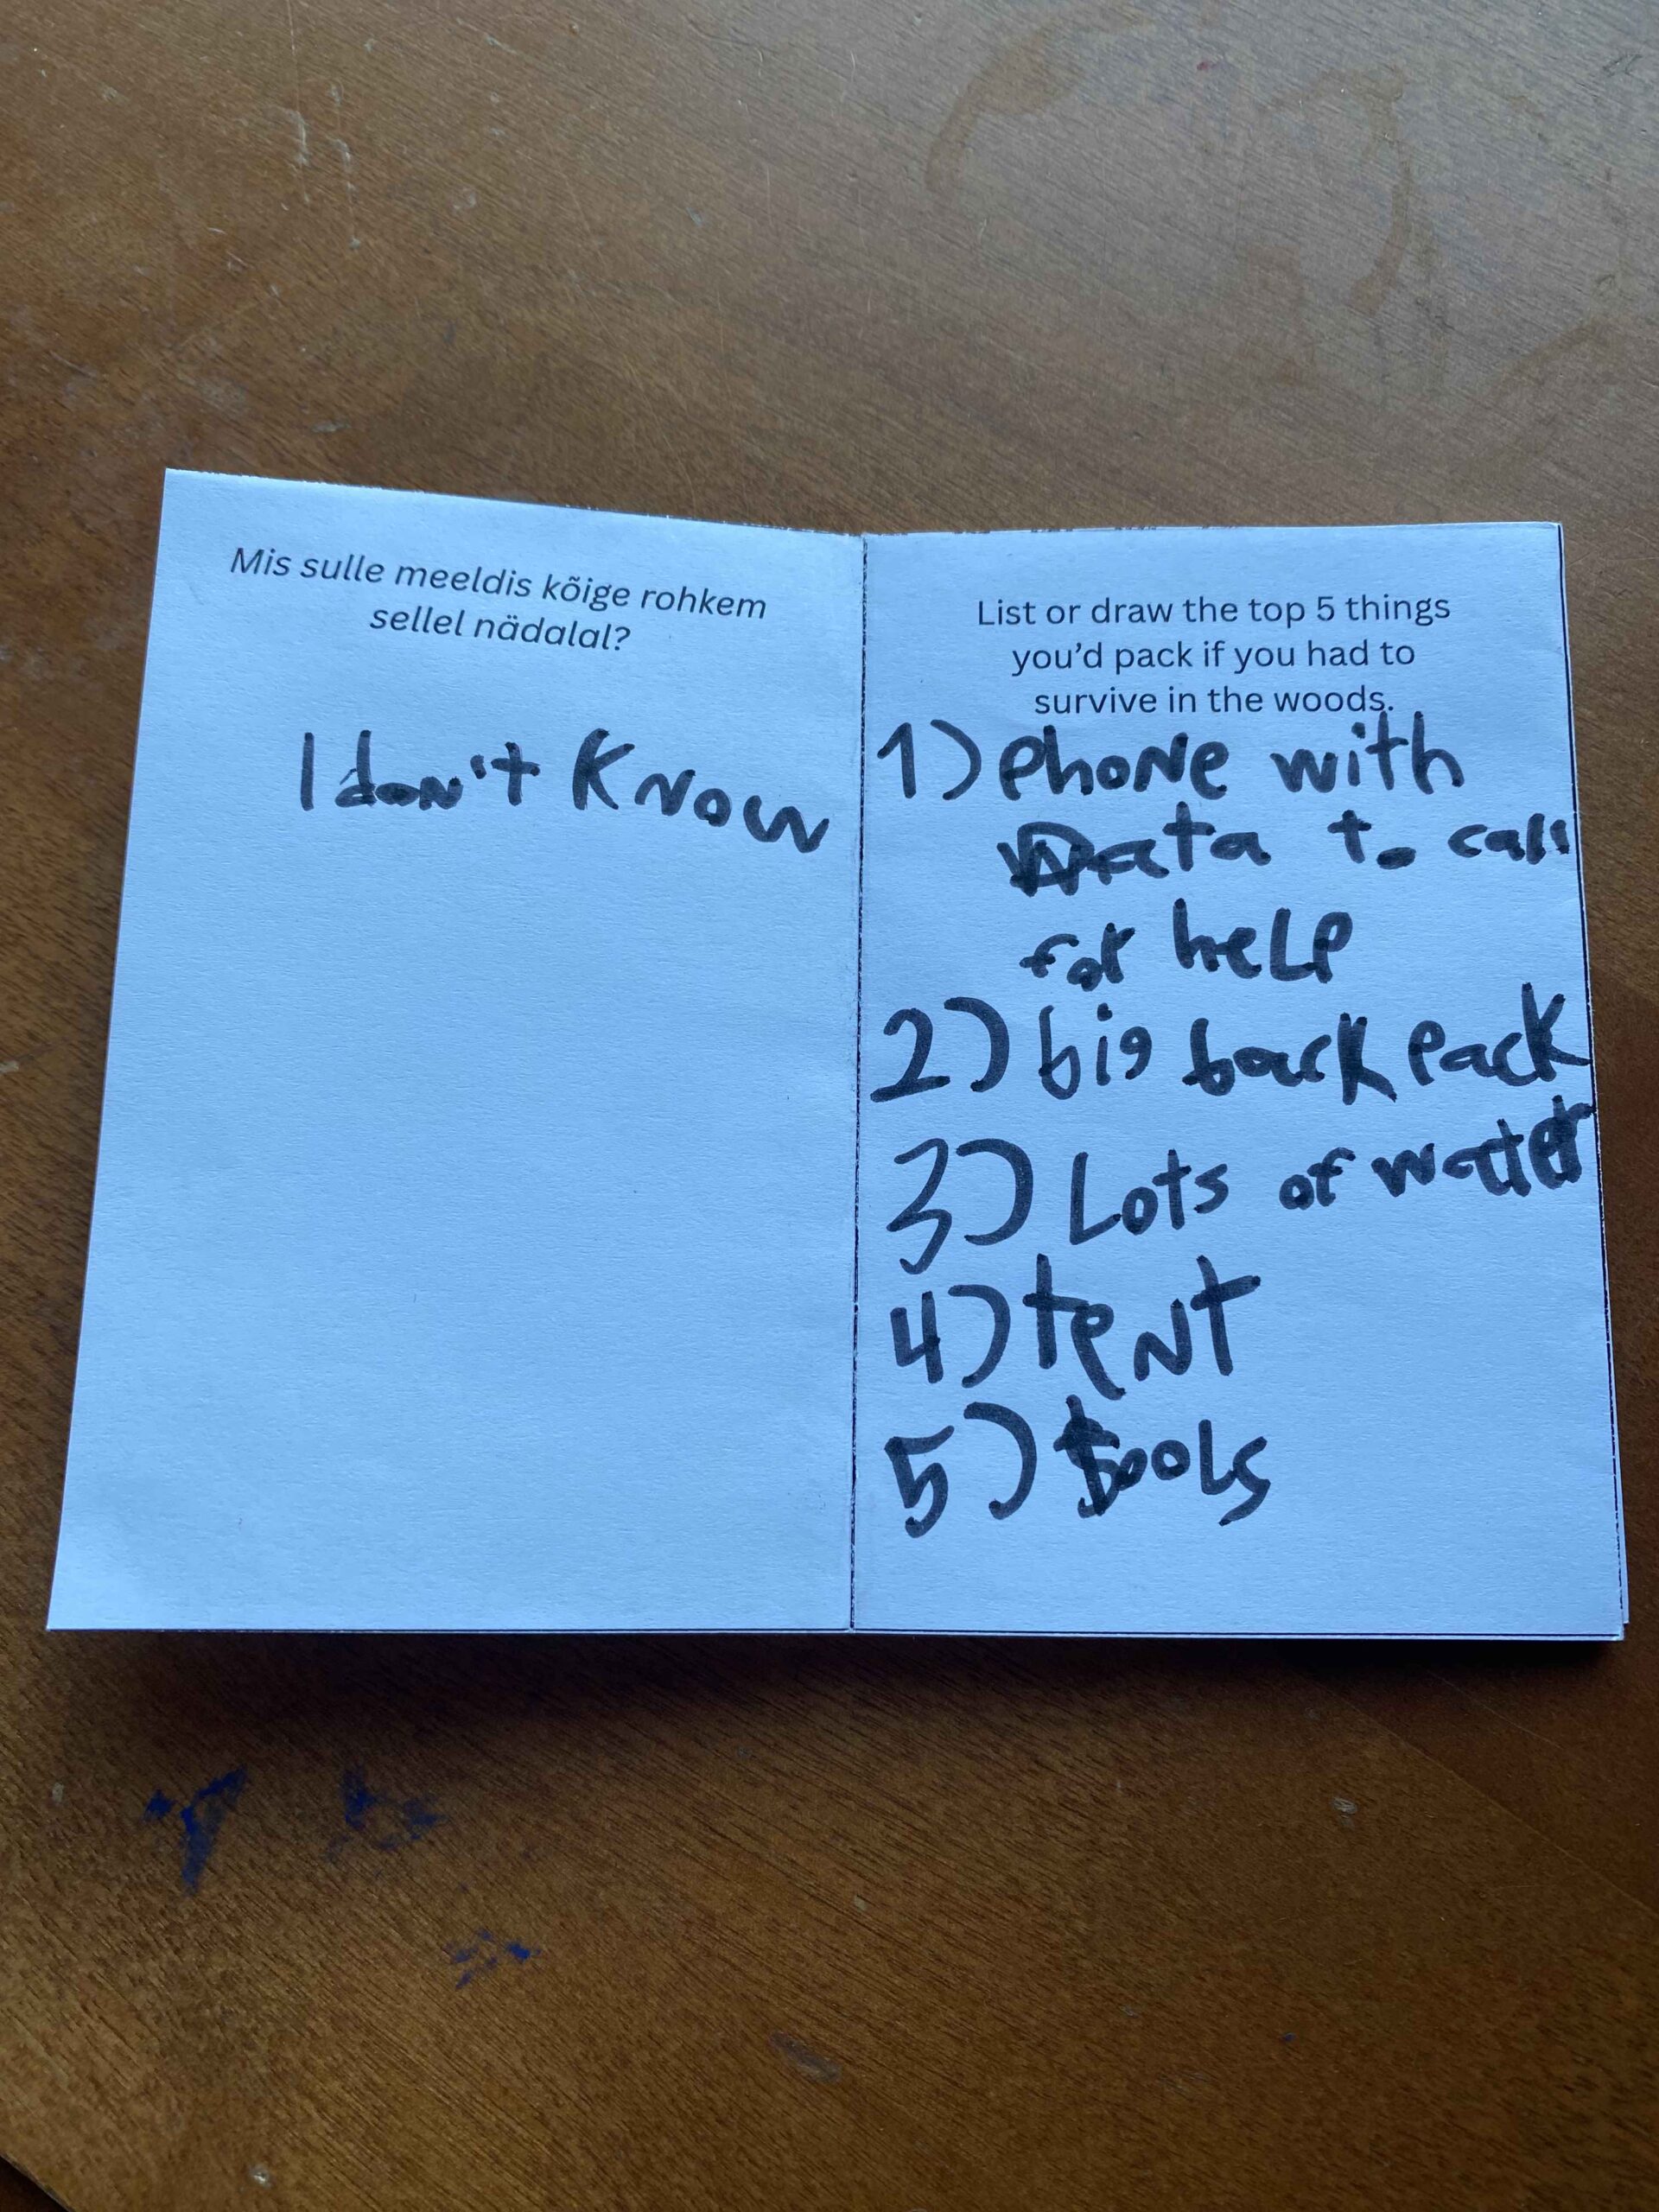 Mis sulle meeldis kõige rohkem
sellel nädalal?
I don't know
List or draw the top 5 things
you'd pack if you had to
survive in the woods.
1) phone with
Data to call
for help
2) big back pack
3) Lots of water
4) tent
5) tools